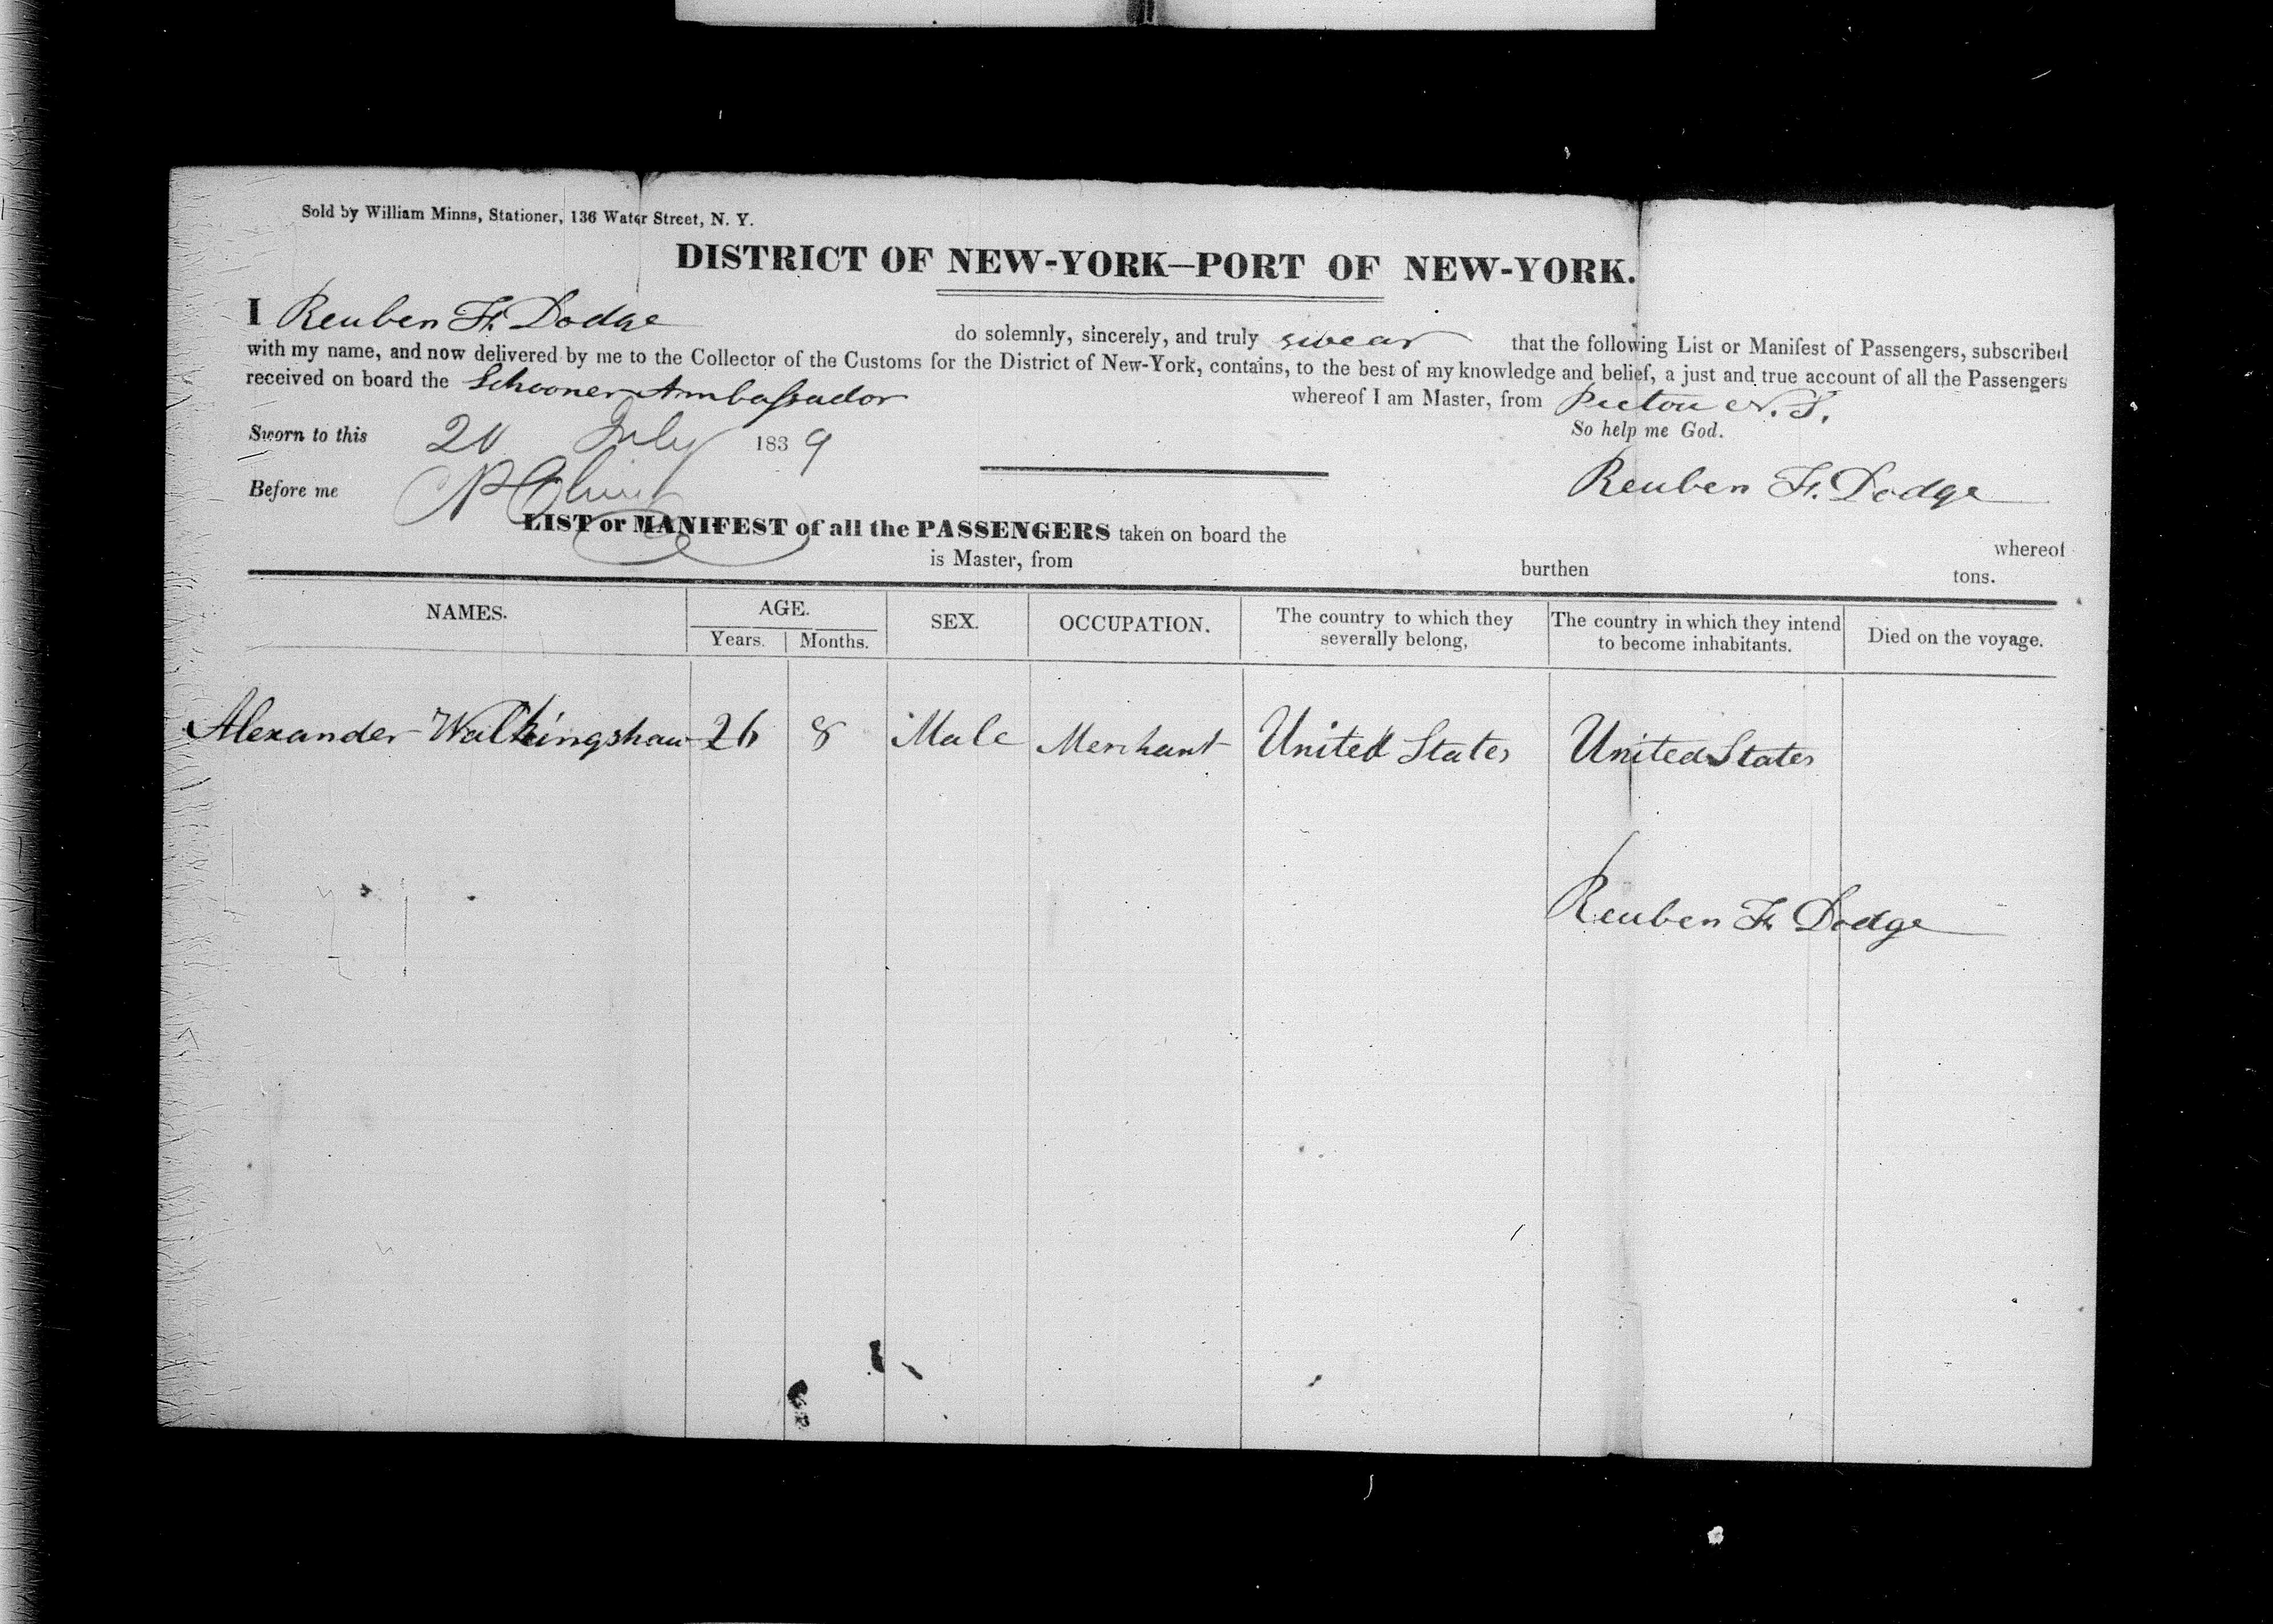 Sold by William Minns, Stationer, 136 Water Street, N. Y.
DISTRICT OF NEW-YORK—PORT OF NEW-YORK.
I Reuben F. Dodge do solemnly, sincerely, and truly swear that the following List or Manifest of Passengers, subscribed
with my name, and now delivered by me to the Collector of the Customs for the District of New-York, contains, to the best of my knowledge and belief, a just and true account of all the Passengers
received on board the Schooner Ambassador whereof I am Master, from Pictou N.S.
Sworn to this July 1839 So help me God.
Before me Reuben F. Dodge
LIST or MANIFEST of all the PASSENGERS taken on board the whereof
is Master, from burthen tons.
NAMES. AGE. SEX. OCCUPATION. The country to which they severally belong, The country in which they intend to become inhabitants. Died on the voyage.
Years. Months.
Alexander Walkingshaw 26 8 Male Merchant United States United States
Reuben F. Dodge